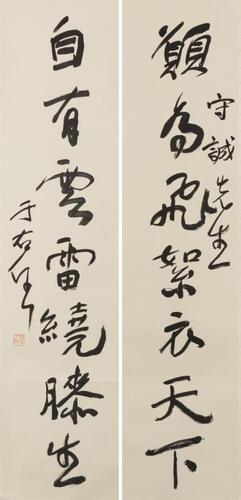 願為飛絮衣天下
守誠先生
自有雲雷繞膝生
于右任